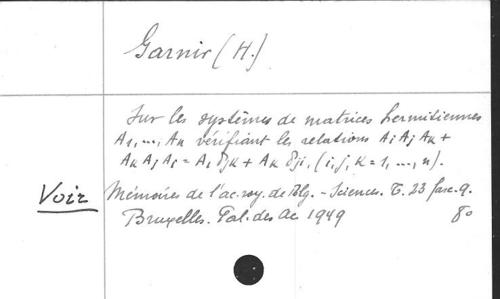 Garnir (H.)
Sur les systèmes de matrices hermitiennes
A1, ..., An vérifiant les relations Ai Aj Ak +
Ak Aj Ai = Ai δjk + Ak δji, (i, j, k = 1, ..., n).
Voir Mémoires de l'ac. roy. de Blg. - Sciences. T. 23 fasc. 9.
Bruxelles. Pal. des Ac 1949 8o